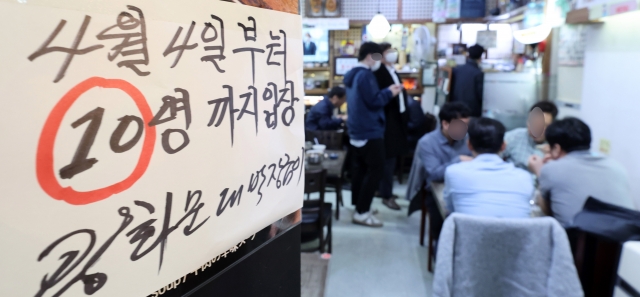 4월 4일부터
10명 까지 입장
광화문 대박장집이